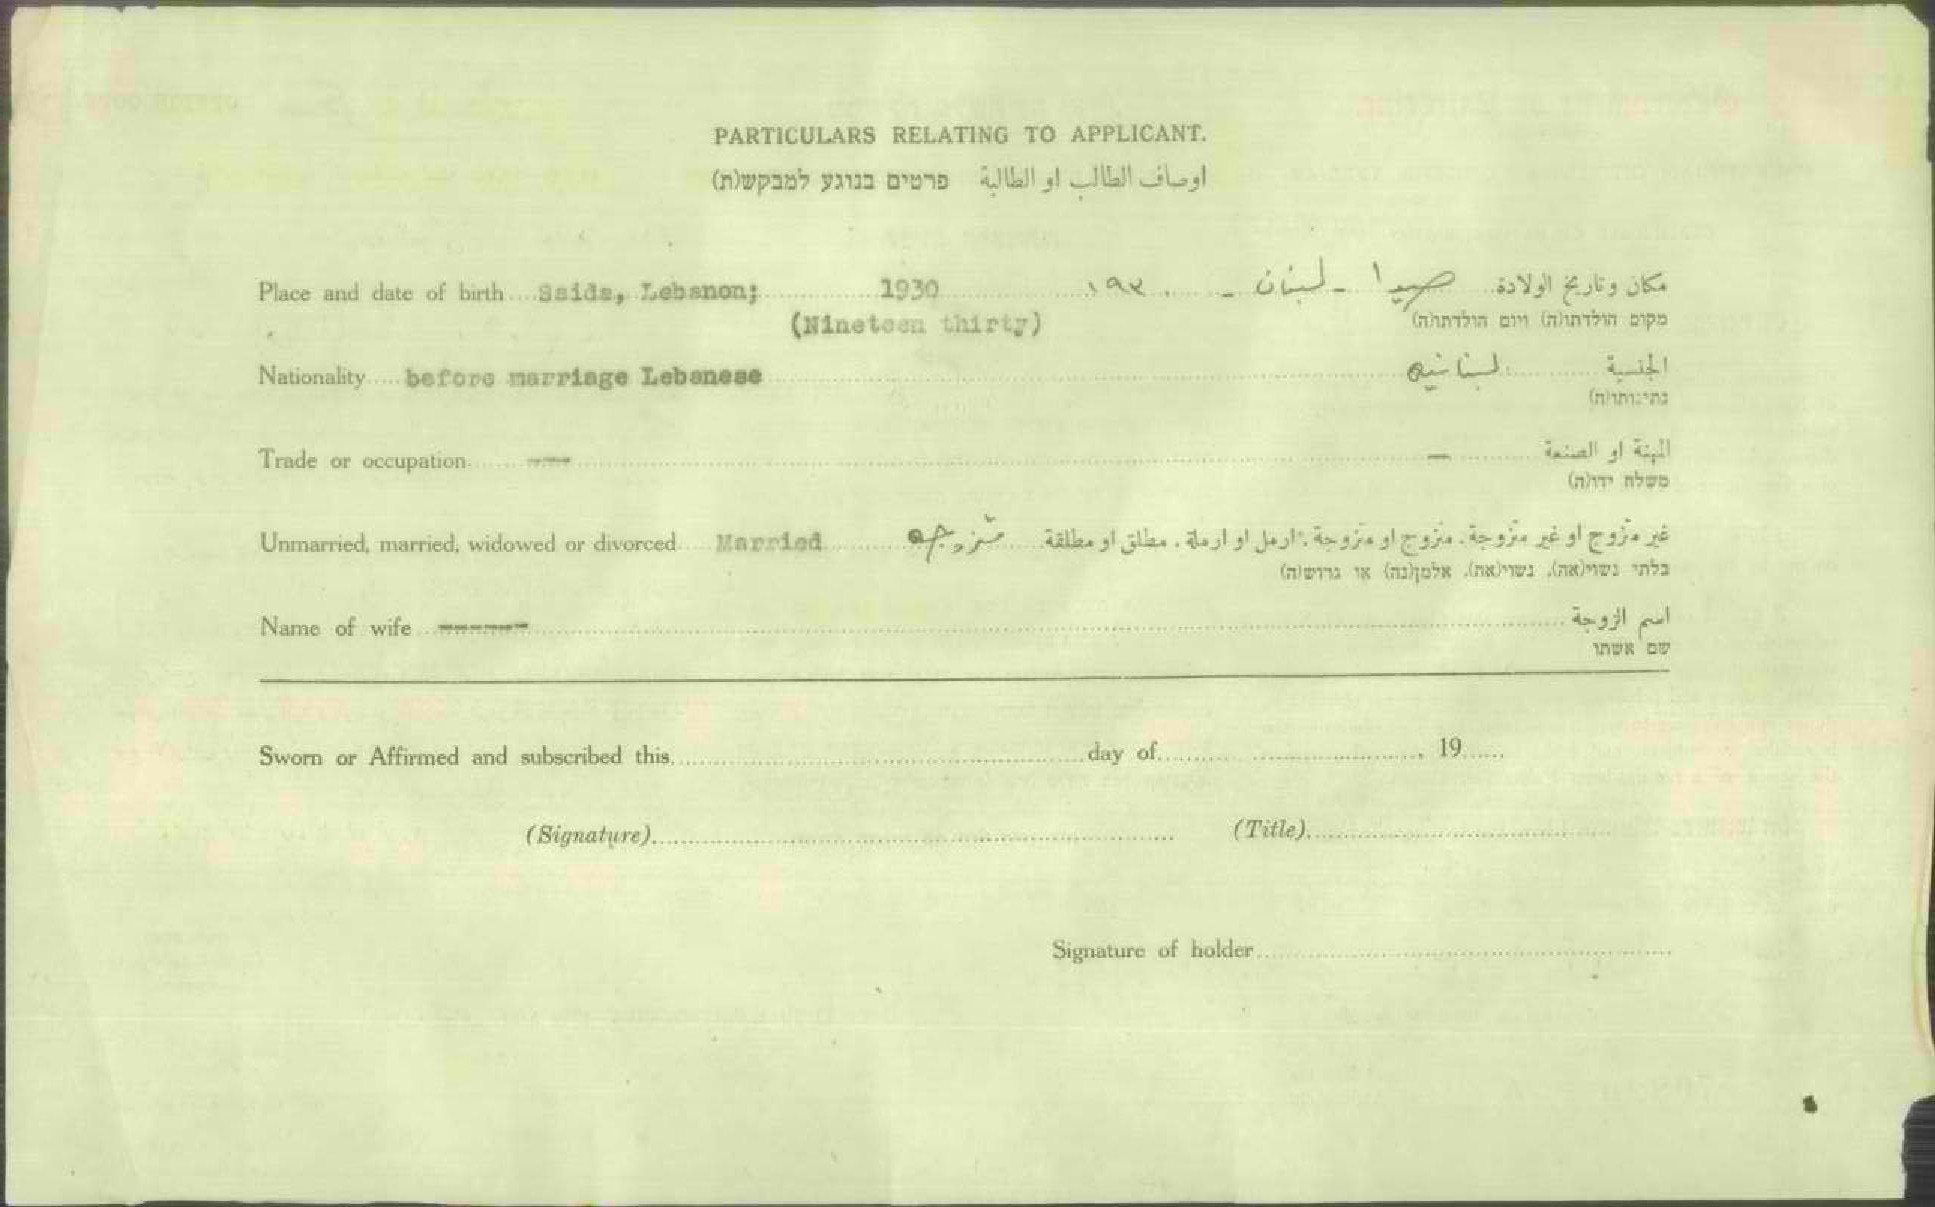 PARTICULARS RELATING TO APPLICANT.
اوصاف الطالب او الطالبة פרטים בנוגע למבקש(ת)
Place and date of birth Saida, Lebanon; 1930 ١٩٣٠ - صيدا - لبنان مكان وتاريخ الولادة
(Nineteen thirty) מקום הולדתו(ה) ויום הולדתו(ה)
Nationality before marriage Lebanese لبنانيه الجنسية
נתינותו(ה)
Trade or occupation --- — المهنة او الصنعة
משלח ידו(ה)
Unmarried, married, widowed or divorced Married متزوجه غير متزوج او غير متزوجة. متزوج او متزوجة. ارمل او ارملة. مطلق او مطلقة
בלתי נשוי(אה), נשוי(את), אלמן(נה) או גרוש(ה)
Name of wife ------ اسم الزوجة
שם אשתו
Sworn or Affirmed and subscribed this day of 19
(Signature) (Title)
Signature of holder